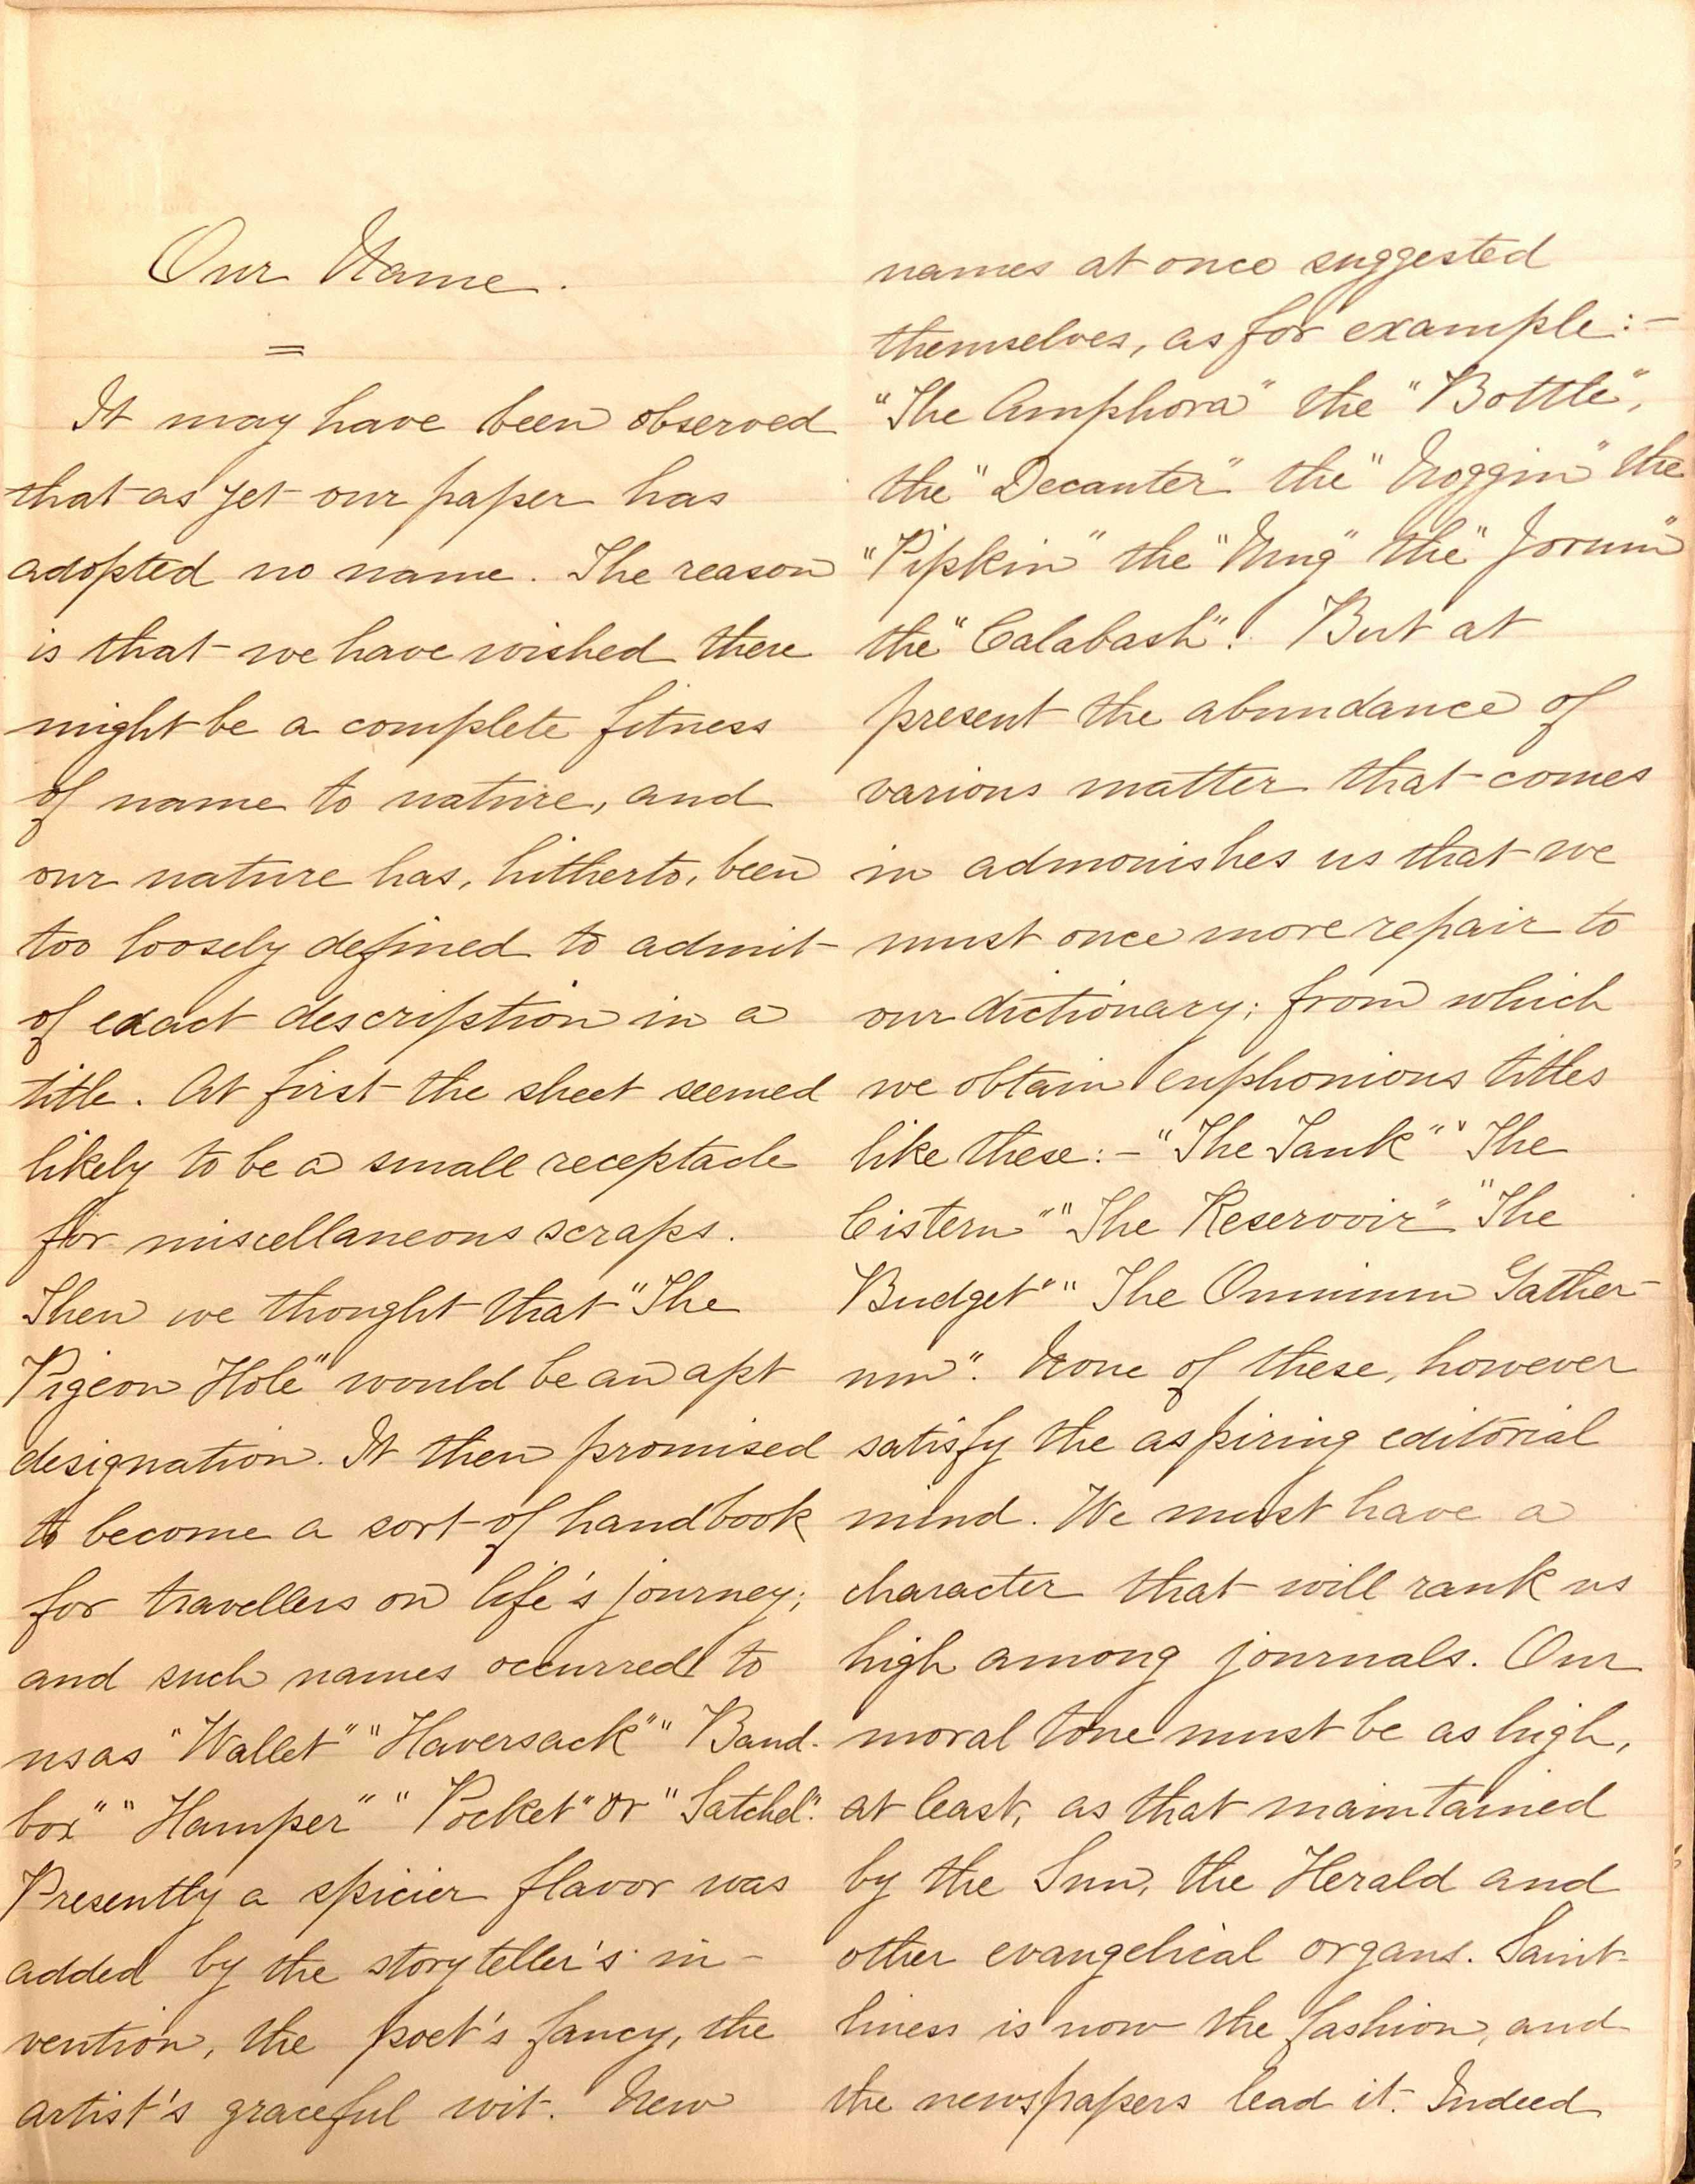 Our Name.
=
It may have been observed
that as yet our paper has
adopted no name. The reason
is that we have wished there
might be a complete fitness
of name to nature, and
our nature has, hitherto, been
too loosely defined to admit
of exact description in a
title. At first the sheet seemed
likely to be a small receptacle
for miscellaneous scraps.
Then we thought that "The
Pigeon Hole" would be an apt
designation. It then promised
to become a sort of handbook
for travellers on life's journey;
and such names occurred to
us as "Wallet" "Haversack" "Band-
box" "Hamper" "Pocket" or "Satchel".
Presently a spicier flavor was
added by the storyteller's in-
vention, the poet's fancy, the
artist's graceful wit. New
names at once suggested
themselves, as for example:-
"The Amphora" the "Bottle",
the "Decanter" the "Noggin" the
"Pipkin" the "Mug" the "Jorum"
the "Calabash". But at
present the abundance of
various matter that comes
in admonishes us that we
must once more repair to
our dictionary; from which
we obtain euphonious titles
like these:- "The Tank" "The
Cistern" "The Reservoir" "The
Budget" "The Omnium Gather-
um". None of these, however
satisfy the aspiring editorial
mind. We must have a
character that will rank us
high among journals. Our
moral tone must be as high,
at least, as that maintained
by the Sun, the Herald and
other evangelical organs. Saint-
liness is now the fashion, and
the newspapers lead it. Indeed